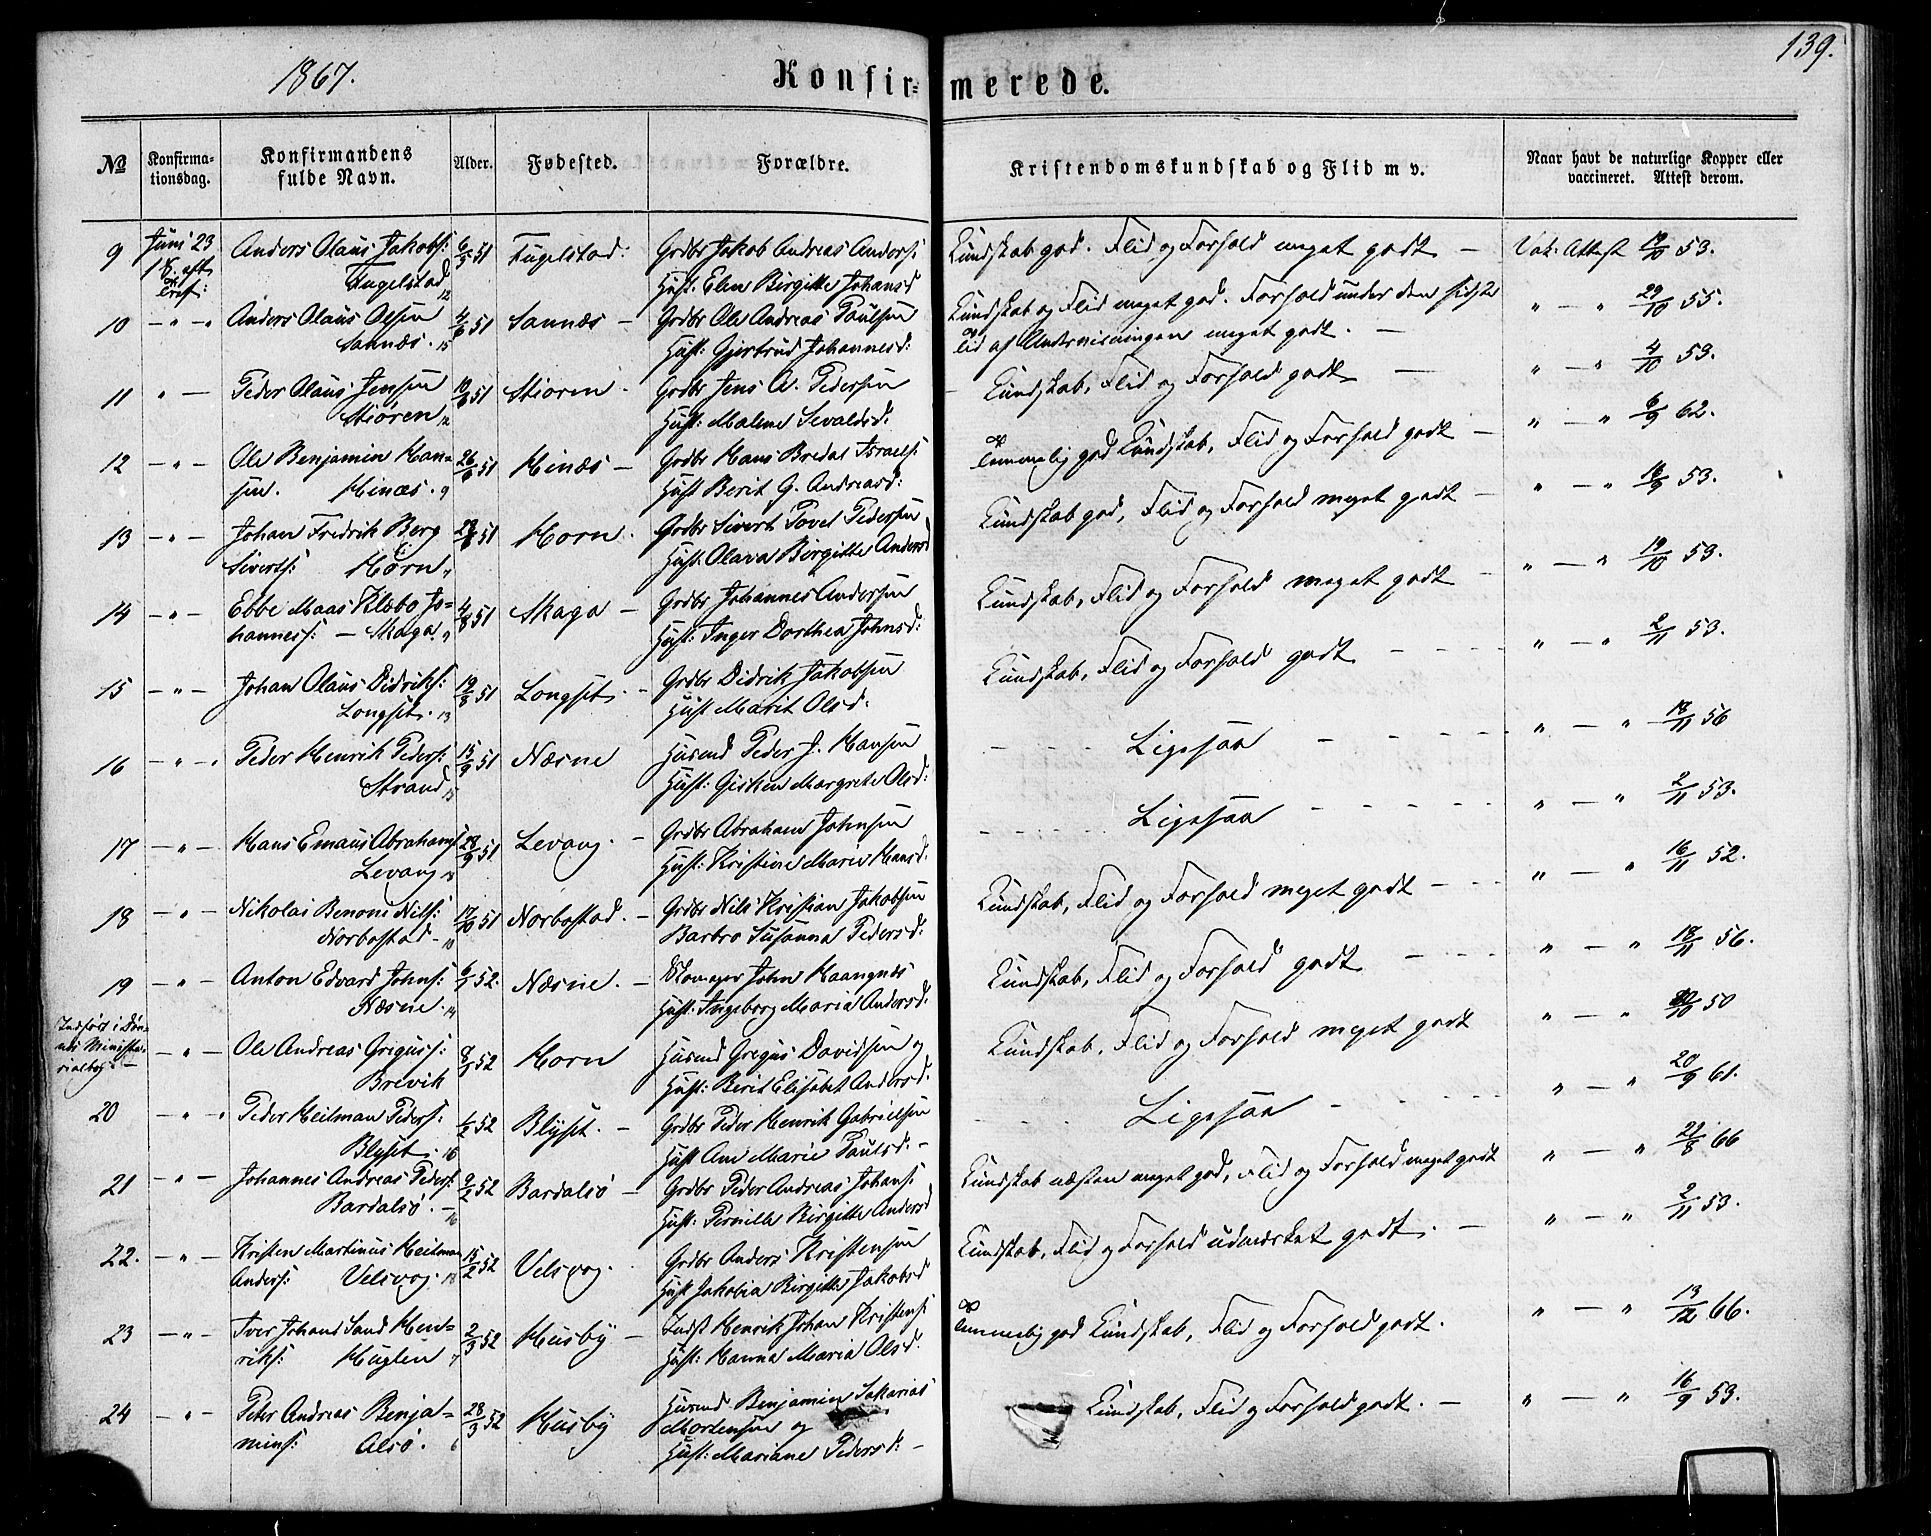 1867.
Konfir-
merede.
139.
№
Konfirma-
tionsdag.
Konfirmandens
fulde Navn.
Alder.
Fødested.
Forældre.
Kristendomskundskab og Flid m v.
Naar havt de naturlige Kopper eller
vaccineret. Attest derom.
9 Juni 23 Anders Olaus Jakobs: 6/5 51 Fugelstad. Grdbr Jakob Andreas Anders: Kundskab god. Flid og Forhold meget godt — Vak: Attest 53.
Fugelstad 12 Hust. Elen Birgitte Johansd
10 — " — " Anders Olaus Olsen 4/6 51 Sannæs — Grdbr Ole Andreas Paulsen Kundskab og Flid meget god. Forhold under den sidste " — " 29/10 55.
Sannæs. 15 Hust: Gjertrud Johannesd: Tid af Undervisningen meget godt. —
11 " — Peder Olaus Jensen 10/6 51 Stioren Grdbr Jens A. Pedersen — Kundskab, Flid og Forhold godt — " — " 4/10 53.
Stiøren 12 Hust: Malene Sevaldsd:
12 — " — Ole Benjamin Han- 26/6 51 Hinæs — Grdbr Hans Bredal Israels: Temmelig god Kundskab, Flid og Forhold godt — " — " 6/9 62.
sen. Hinæs. 9 Hust Berit G. Andreasd:
13 — " — Johan Fredrik Berg 51 Horn. Grdbr Sivert Povel Pedersen Kundskab god, Flid og Forhold meget godt — " — " 16/9 53.
Siverts: Horn 7 Hust. Olava Birgitte Andersd
14 — " — Ebbe Maas Klæbo Jo- 4/8 51 Skaga — Grdbr Johannes Andersen Kundskab, Flid og Forhold meget godt — " — " 19/10 53.
hanness: — Skaga 9 Hust: Inger Dorthea Johnsd:
15 — " — Johan Olaus Didriks: 19/8 51 Longset. — Grdbr Didrik Jakobsen Kundskab, Flid og Forhold godt " — " 2/11 53.
Longset. 13 Hust Marit Olsd:
16 — " — " Peder Henrik Peders: 15/9 51 Næsne Husmd Peder J. Hansen Ligesaa " — " 18/11 56
Strand 15 Hust: Gisken Margrete Olsd:
17 — " — Hans Emaus Abrahams: 28/9 51 Levang. — Grdbr Abraham Johnsen Ligesaa " — " 2/11 53.
Levang Hust: Kristine Marie Hansd:
18 — " — Nikolai Benoni Nils: 17/10 51 Norbostad. — Grdbr Nils Kristian Jakobsen Kundskab, Flid og Forhold meget godt " — " 16/11 52.
Norbostad — 10 Barbro Susanna Pedersd:
19 — " — Anton Edvard Johns: 6/1 52. Næsne. — John Haangnæs Kundskab, Flid og Forhold godt " — " 18/11 56.
Næsne. 14 Hust: Ingeborg Maria Andersd:
Indført i Døn-
næs Ministe-
rialbog. —
— " — Ole Andreas Gregers: 8/1 52 Horn Husmd Gregus Davidsen og Kundskab, Flid og Forhold meget godt " — " 50
Brevik Hust: Berit Elisabet Andersd.
20 — " " Peder Heitman Peders: 1/2 52 Blyset. — Grdbr Peder Henrik Gabrielsen Ligesaa " — " 20/9 61.
Blyset. 16 Hust Ane Marie Paulsd: —
21 — " — Johannes Andreas Peders: 9/2 52 Bardalsø — Grdbr Peder Andreas Johans: Kundskab næsten meget god, Flid og Forhold meget godt " — " 29/8 66
Bardalsø. — 16 Hust: Pernille Birgitte Andersd
22. — " — Kristen Martinus Heitman 15/2 52 Velsvog. Grdbr Anders Kristensen Kundskab, Flid og Forhold udmærket godt. — " — " 2/11 53.
Anders: Velsvog. 13 Hust Jakobia Birgitte Jakobsd
23 — " — Iver Johans Sand Hen- 2/3 52 Husby — Indst Henrik Johan Kristens: Temmelig god Kundskab, Flid og Forhold godt. " — " 13/12 66.
riks: Huglen 7 Hust: Hanna Maria Olsd.
24 — " — Peter Andreas Benja- 28/3 52 Husby Husmd Benjamin Sakarias Kundskab, Flid og Forhold godt. — " — " 16/9 53.
mins: Alsø. 6 Mortensen og
Hust: Mariane Pedersd: —